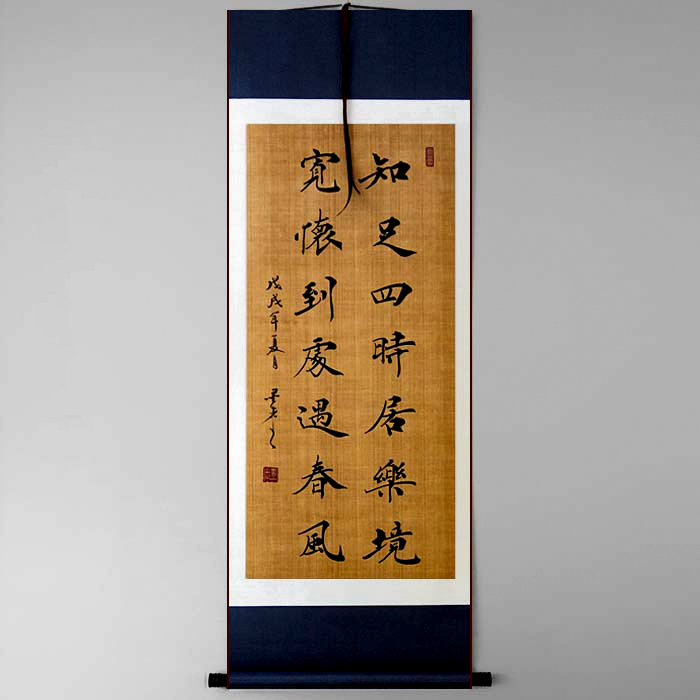 知足四時居樂境
寬懷到處遇春風
戊戌年夏月